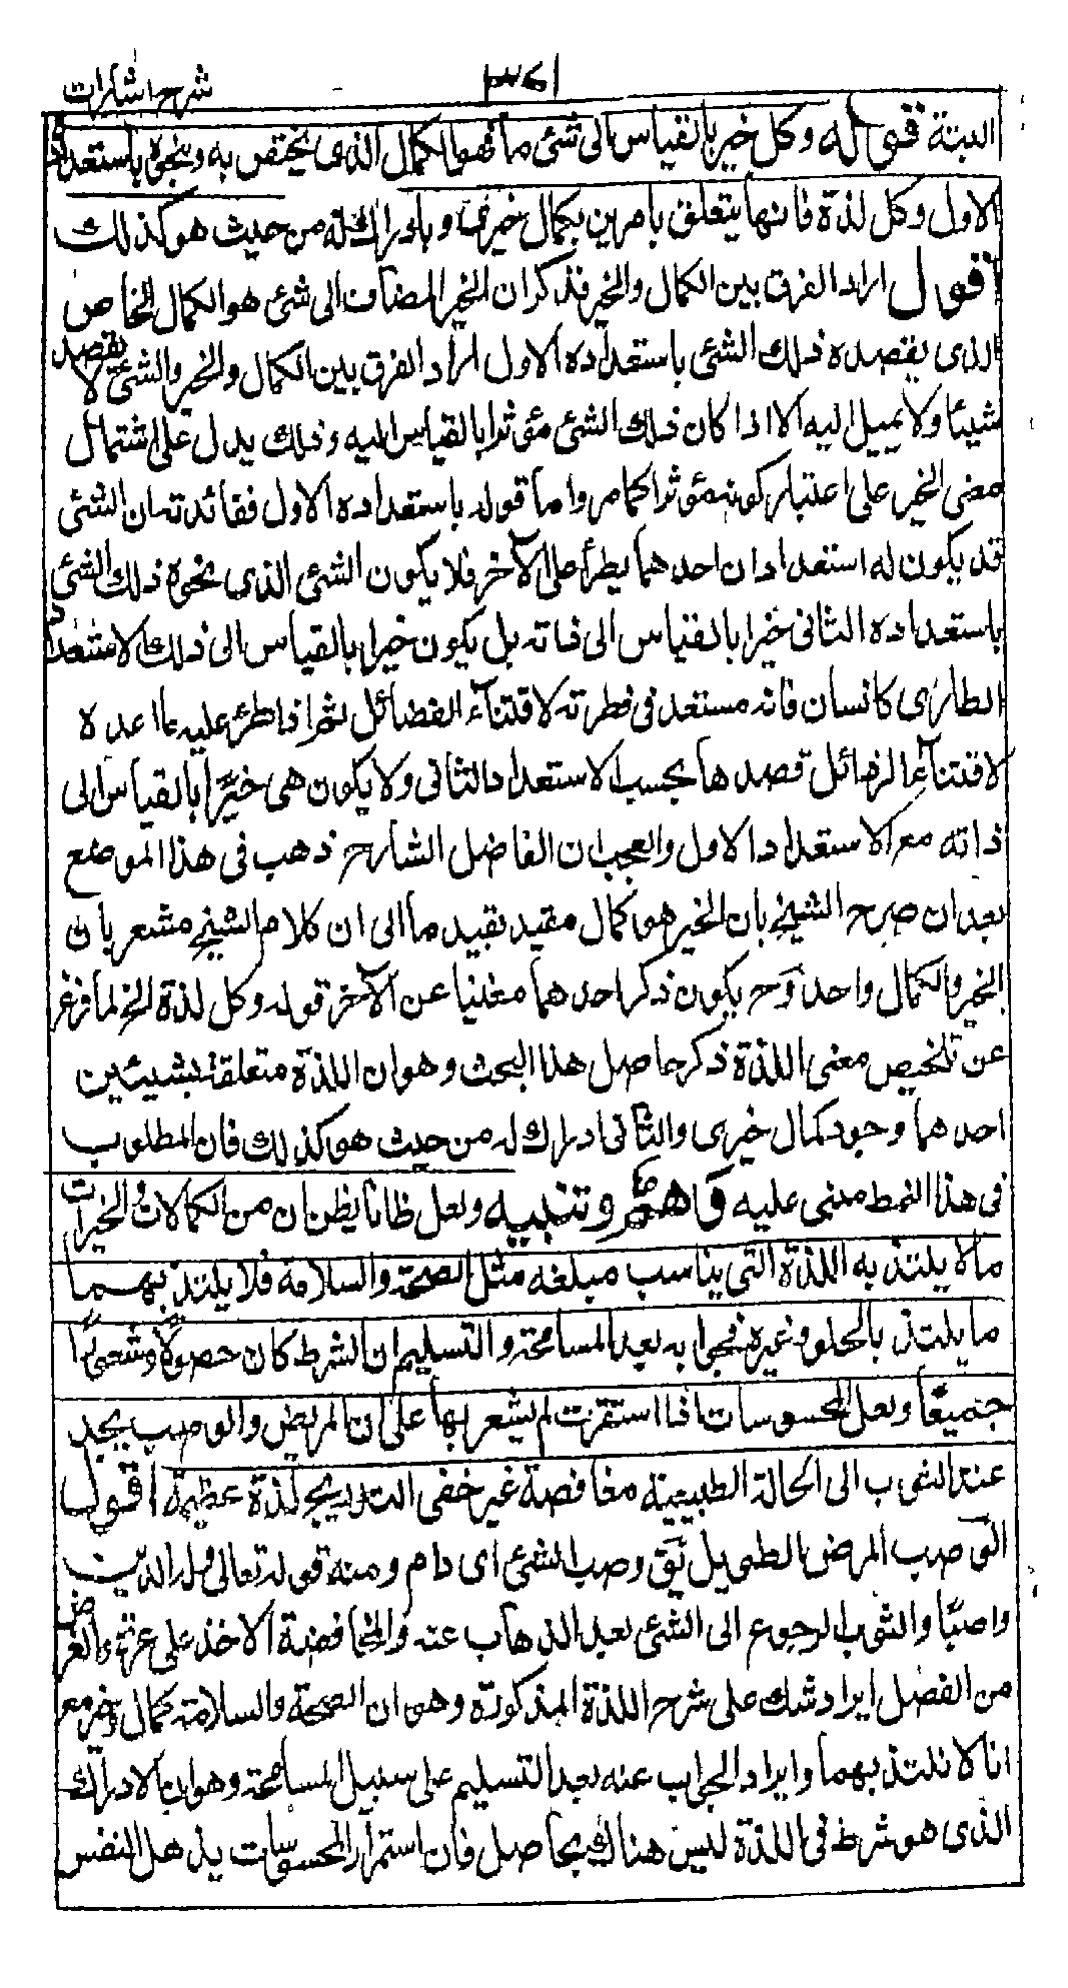 شرح اشارات
٣٤١
البتة قوله وكل خير بالقياس الى شئ ما فهو الكمال الذى يختص به وينحوه باستعداده
الاول وكل لذة فانها يتعلق بامرين بكمال خيرى وبادراك له من حيث هو كذلك
اقول اراد الفرق بين الكمال والخير فذكر ان الخير المضاف الى شئ هو الكمال الخاص
الذى يقصده ذلك الشئ باستعداده الاول اراد الفرق بين الكمال والخير والشئ لا يقصد
شيئا ولا يميل اليه الا اذا كان ذلك الشئ مؤثرا بالقياس اليه وذلك يدل على اشتمال
معنى الخير على اعتبار كونه مؤثرا كما مر واما قوله باستعداده الاول ففائدته ان الشئ
قد يكون له استعدادان احدهما يطرأ على الآخر فلا يكون الشئ الذى نحوه ذلك الشئ
باستعداده الثانى خيرا بالقياس الى ذاته بل يكون خيرا بالقياس الى ذلك الاستعداد
الطارى كانسان فانه مستعد فى فطرته لاقتناء الفضائل ثم اذا طرئ عليه ما اعده
لاقتناء الرذائل قصدها بحسب الاستعداد الثانى ولا يكون هى خيرا بالقياس الى
ذاته مع الاستعداد الاول والعجب ان الفاضل الشارح ذهب فى هذا الموضع
بعد ان صرح الشيخ بان الخير هو كمال مقيد بقيد ما الى ان كلام الشيخ مشعر بان
الخير والكمال واحد وح يكون ذكر احدهما مغنيا عن الآخر قوله وكل لذة الخ لما فرغ
عن تلخيص معنى اللذة ذكر حاصل هذا البحث وهو ان اللذة متعلقة بشيئين
احدهما وجود كمال خيرى والثانى ادراك له من حيث هو كذلك فان المطلوب
فى هذا النمط مبنى عليه وهم وتنبيه ولعل ظانا يظن ان من الكمالات والخيرات
ما لا يلتذ به اللذة التى يناسب مبلغه مثل الصحة والسلامة فلا يلتذ بهما
ما يلتذ بالحلو وغيره فجوابه بعد المسامحة والتسليم ان الشرط كان حصولا وشعورا
جميعا ولعل المحسوسات اذا استقرت لم يشعر بها على ان المريض والوصب يجد
عند الثوب الى الحالة الطبيعية مغافصة غير خفى التدريج لذة عظيمة اقول
الوصب المرض الطويل يق وصب الشئ اى دام ومنه قوله تعالى وله الدين
واصبا والثوب الرجوع الى الشئ بعد الذهاب عنه والمغافصة الاخذ على غرة والغرض
من الفصل ايراد شك على شرح اللذة المذكورة وهو ان الصحة والسلامة كمال وخير مع
انا لا نلتذ بهما وايراد الجواب عنه بعد التسليم على سبيل المسامحة وهو ان الادراك
الذى هو شرط فى اللذة ليس هناك بحاصل فان استمرار المحسوسات يذهل النفس